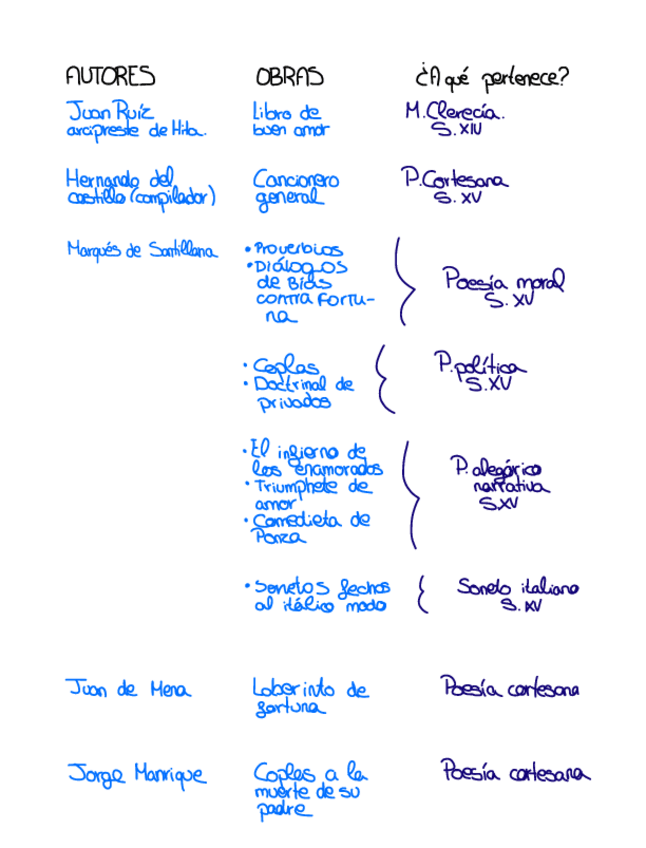 AUTORES OBRAS ¿A qué pertenece?
Juan Ruíz Libro de M. Clerecía.
arcipreste de Hita. buen amor S. XIV
Hernando del Cancionero P. Cortesana
castillo (compilador) general S. XV
Marqués de Santillana • Proverbios
• Diálogos
de Bías Poesía moral
contra Fortu- S. XV
na
• Coplas P. política
• Doctrinal de S. XV
privados
• El infierno de
los enamorados P. alegórico
• Triumphete de narrativa
amor S.XV
• Comedieta de
Ponza
• Sonetos fechos Soneto italiano
al itálico modo S. XV
Juan de Mena Laberinto de Poesía cortesana
fortuna
Jorge Manrique Coples a la Poesía cortesana
muerte de su
padre